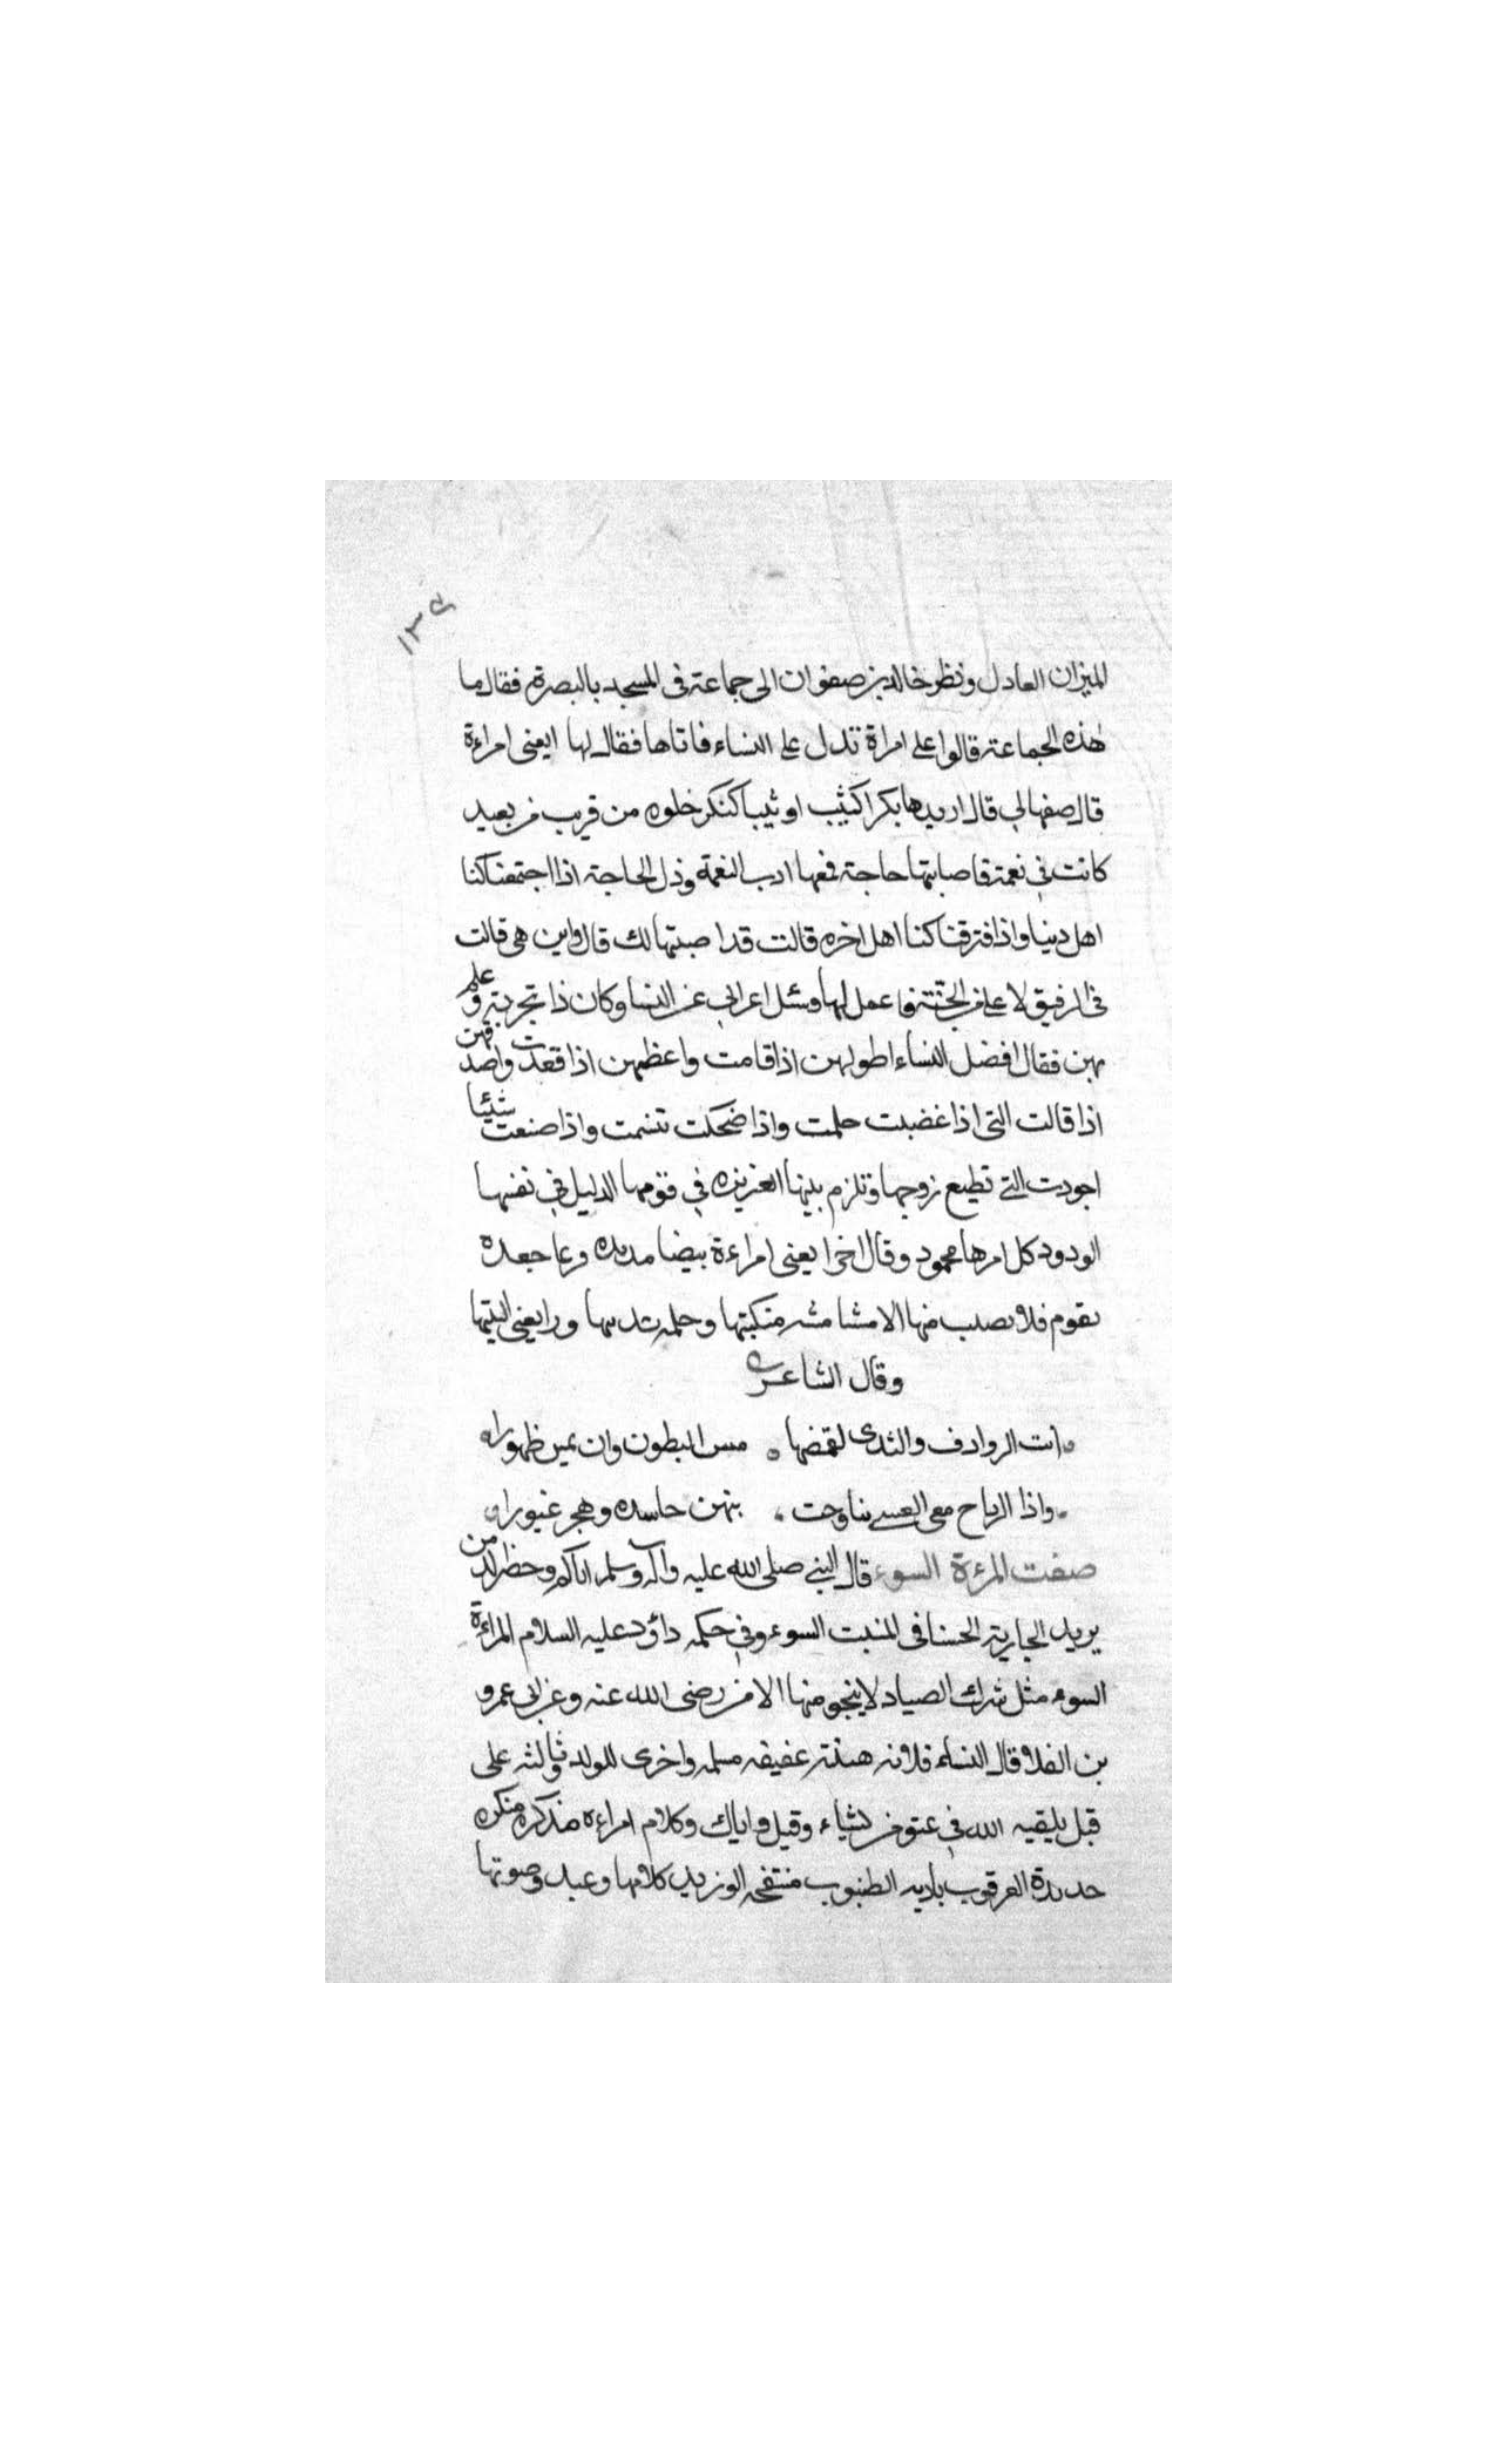 ١٣٤
الميزان العادل ونظر خالد بن صفوان الى جماعة فى المسجد بالبصرة فقال ما
هذه الجماعة قالوا على امراة تدل على النساء فاتاها فقال لها ابغى امراءة
قال صفها لي قال اريدها بكرا كثيب او ثيبا كبكر حلوه من قريب من بعيد
كانت في نعمة فاصابتها حاجة فمعها ادب النعمة وذل الحاجة اذا اجتمعنا كنا
اهل دنيا واذا افترقنا كنا اهل اخره قالت قد اصبتها لك قال واين هي قالت
فى الرفيق الاعلى من الجنة فاعمل لها وسئل اعرابي عن النسا وكان ذا تجربة وعلم
بهن فقال افضل النساء اطولهن اذا قامت واعظمهن اذا قعدت واصدقهن
اذا قالت التى اذا غضبت حلمت واذا ضحكت تبسمت واذا صنعت شيئا
اجودت التي تطيع زوجها وتلزم بيتها العزيزه في قومها الدليل في نفسها
الودود كل امرها محمود وقال اخر ابغى امراءة بيضا مديده فرعا جعدة
تقوم فلا يصيب منها الا مشاشه منكبيها وحلمه ثدييها ورابغى اليتيها
وقال الشاعر
ابت الروادف والثدى لقمصها مس البطون وان يمس ظهورا
واذا الرياح مع العسي تناوحت نبهن حاسده وهجن غيورا
صفت المرءة السوء قال النبي صلى الله عليه وآله وسلم اياكم وخضرا الدمن
يريد الجارية الحسنا فى المنبت السوء وفي حكمه داؤد عليه السلام المراءة
السوء مثل شرك الصياد لا ينجو منها الا من رضى الله عنه وعن ابى عمرو
بن العلا قال النساء ثلاثه هينة عفيفه مسلمه واخرى للولد وثالثه على
قبل يلقيه الله في عنق من يشاء وقيل واياك وكلام امراءه مذكره منكره
حديدة العرقوب باديه الظنبوب منتفخه الوريد كلامها وعيد وصوتها